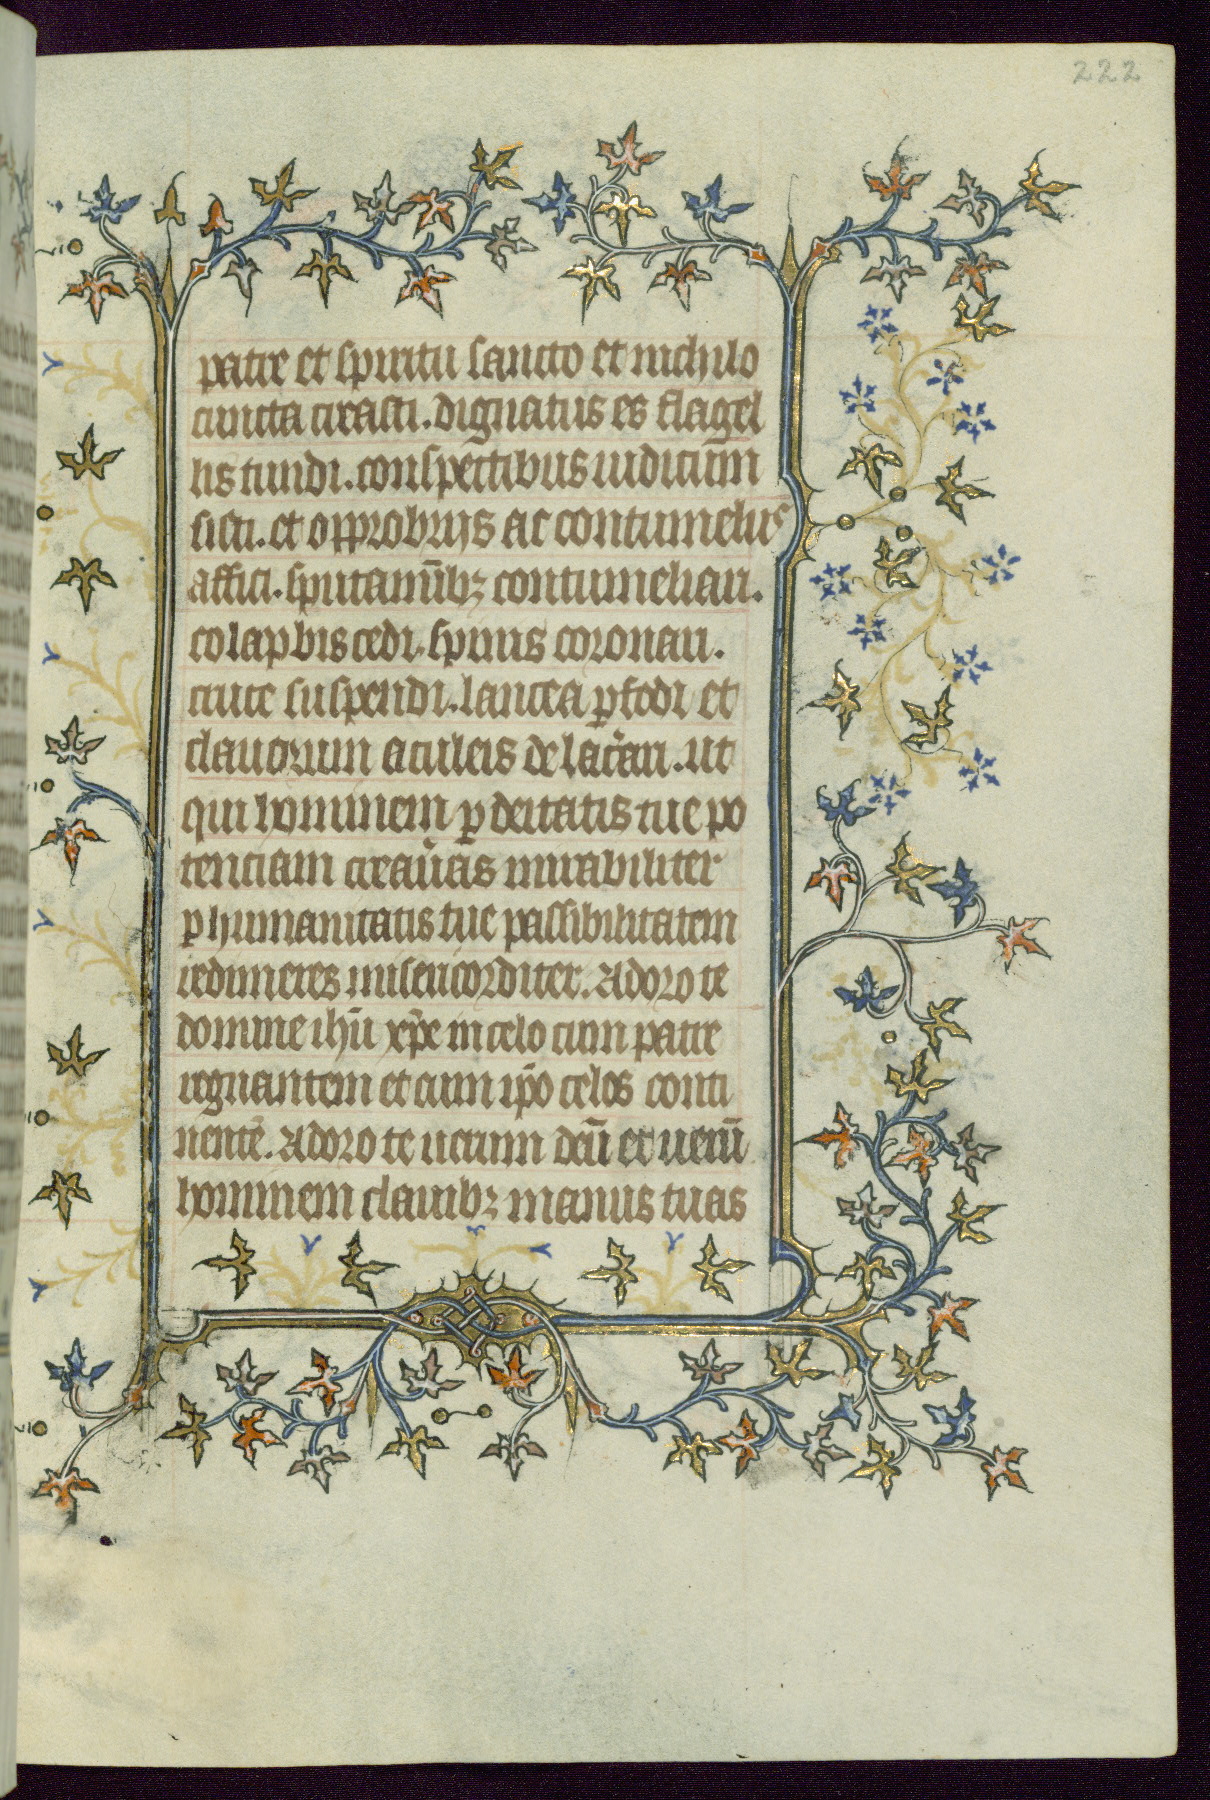 222
patre et spiritu sancto et nichilo
cuncta creasti. dignatus es flagel
lis tundi. conspectibus iudicum
sisti. et opprobrijs ac contumelijs
affici. sputaminibꝫ contumeliari.
colaphis cedi. spinis coronari.
cruce suspendi. lancea ꝑfodi et
clauorum aculeis delac̄ari. ut
qui hominem ꝑ deitatis tue po
tenciam creau̅as mirabiliter
ꝑ humanitatis tue passibilitatem
redimeres misericorditer. Adoro te
domine ih̅u xp̅e in celo cum patre
regnantem et cum ip̅o celos conti
nente̅. Adoro te uerum deu̅ et ueru̅
hominem clauibꝫ manus tuas